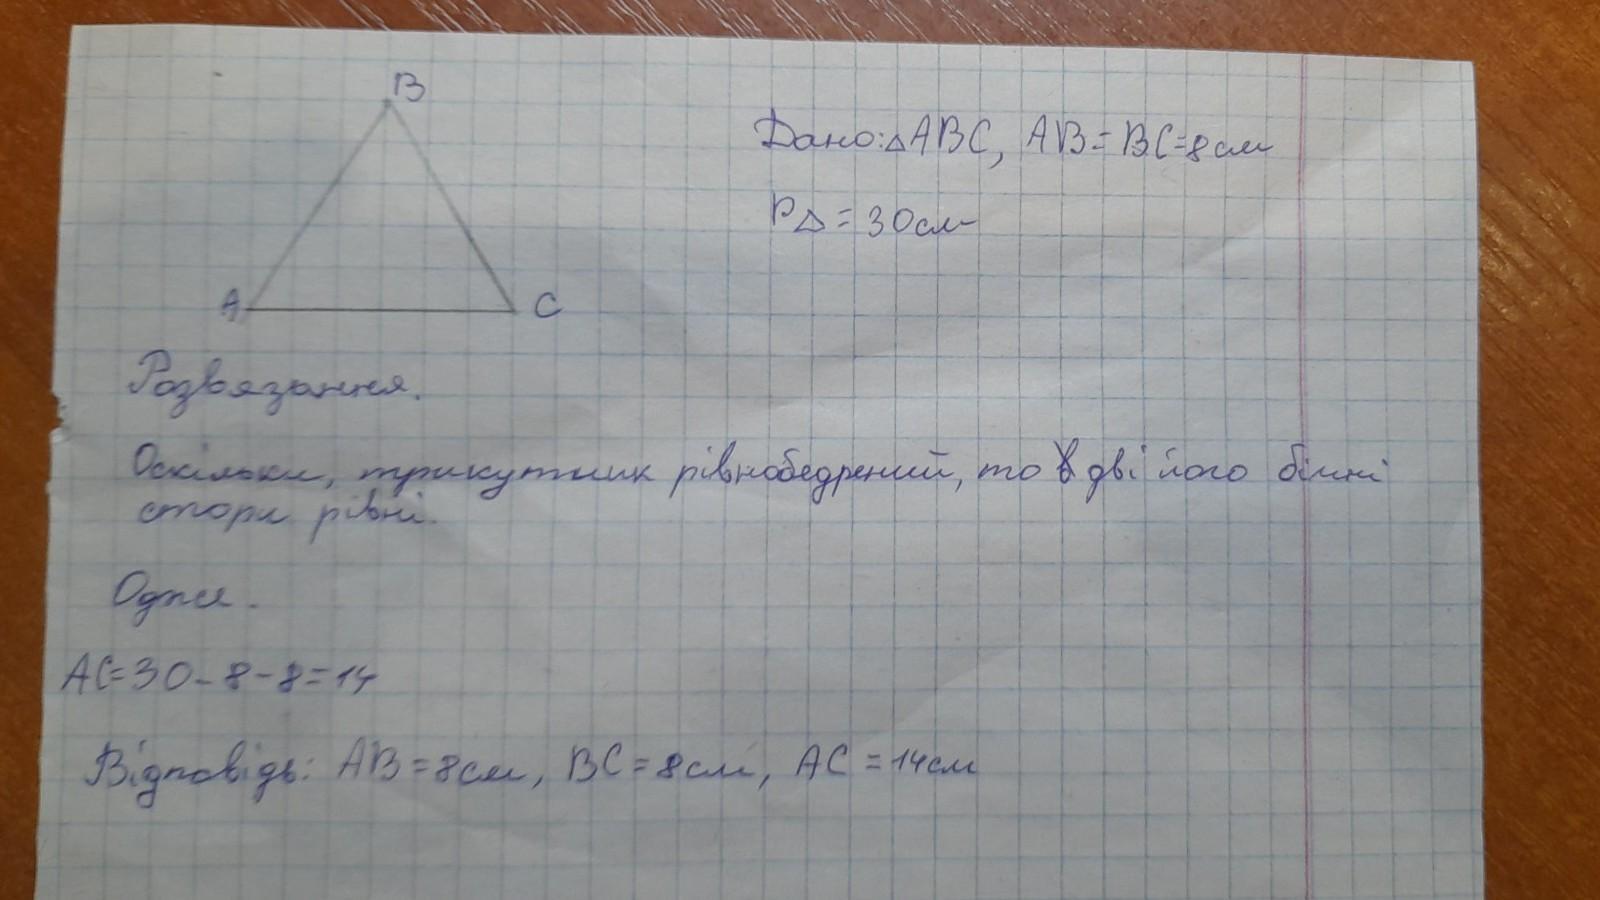 B
A
C
Дано: △ABC, AB = BC = 8 см
P△ = 30 см
Розвязання.
Оскільки, трикутник рівнобедрений, то дві його бічні
стори рівні.
Одже.
AC = 30 - 8 - 8 = 14
Відповідь: AB = 8 см, BC = 8 см, AC = 14 см